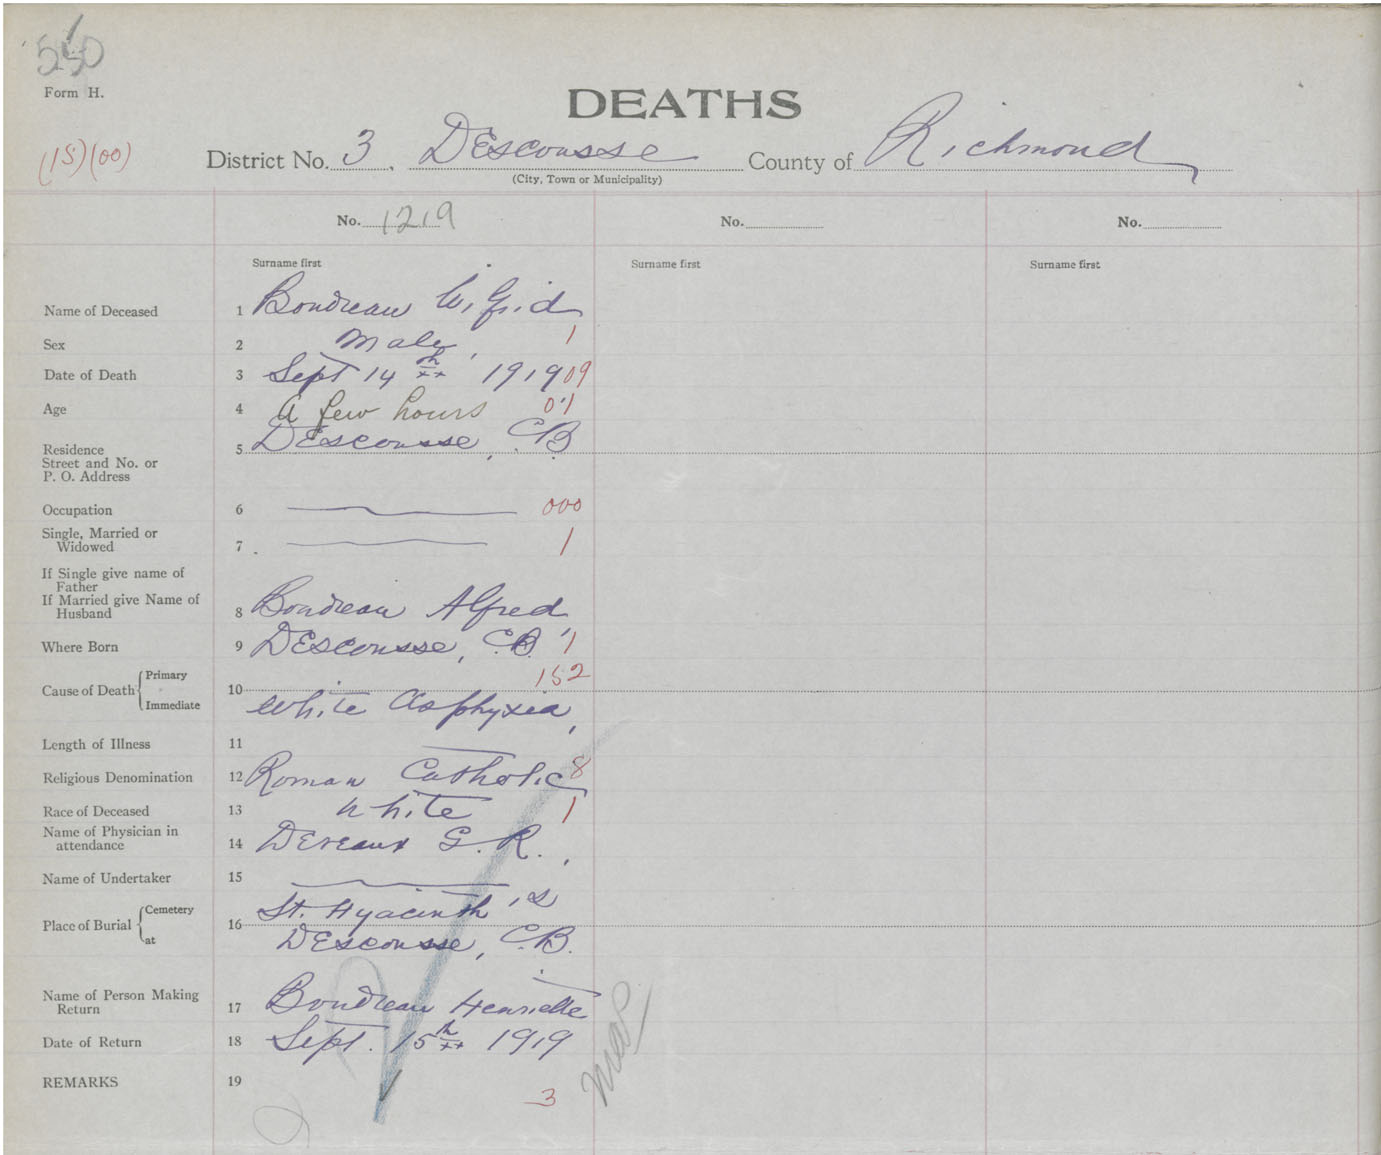 550
Form H.
DEATHS
(15)(00)
District No. 3, Descousse County of Richmond
(City, Town or Municipality)
No. 1219 No. No.
Surname first Surname first Surname first
Name of Deceased 1 Boudreau Wilfrid
Sex 2 Male 1
Date of Death 3 Sept 14th 1919 09
Age 4 A few hours 01
Residence
Street and No. or
P. O. Address 5 Descousse, C.B.
Occupation 6 000
Single, Married or
Widowed 7 1
If Single give name of
Father
If Married give Name of
Husband 8 Boudreau Alfred
Where Born 9 Descousse, C.B. 1
152
Cause of Death Primary
Immediate 10 White Asphyxia
Length of Illness 11
Religious Denomination 12 Roman Catholic 8
Race of Deceased 13 White 1
Name of Physician in
attendance 14 Deveaux G. R.
Name of Undertaker 15
Place of Burial Cemetery
at 16 St. Hyacinth's
Descousse, C.B.
Name of Person Making
Return 17 Boudreau Henriette
Date of Return 18 Sept. 15th 1919
REMARKS 19
3